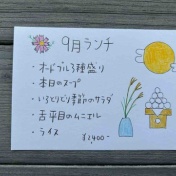 9月ランチ
・オードブル3種盛り
・本日のスープ
・いろとりどり季節のサラダ
・舌平目のムニエル
・ライス
¥2400-